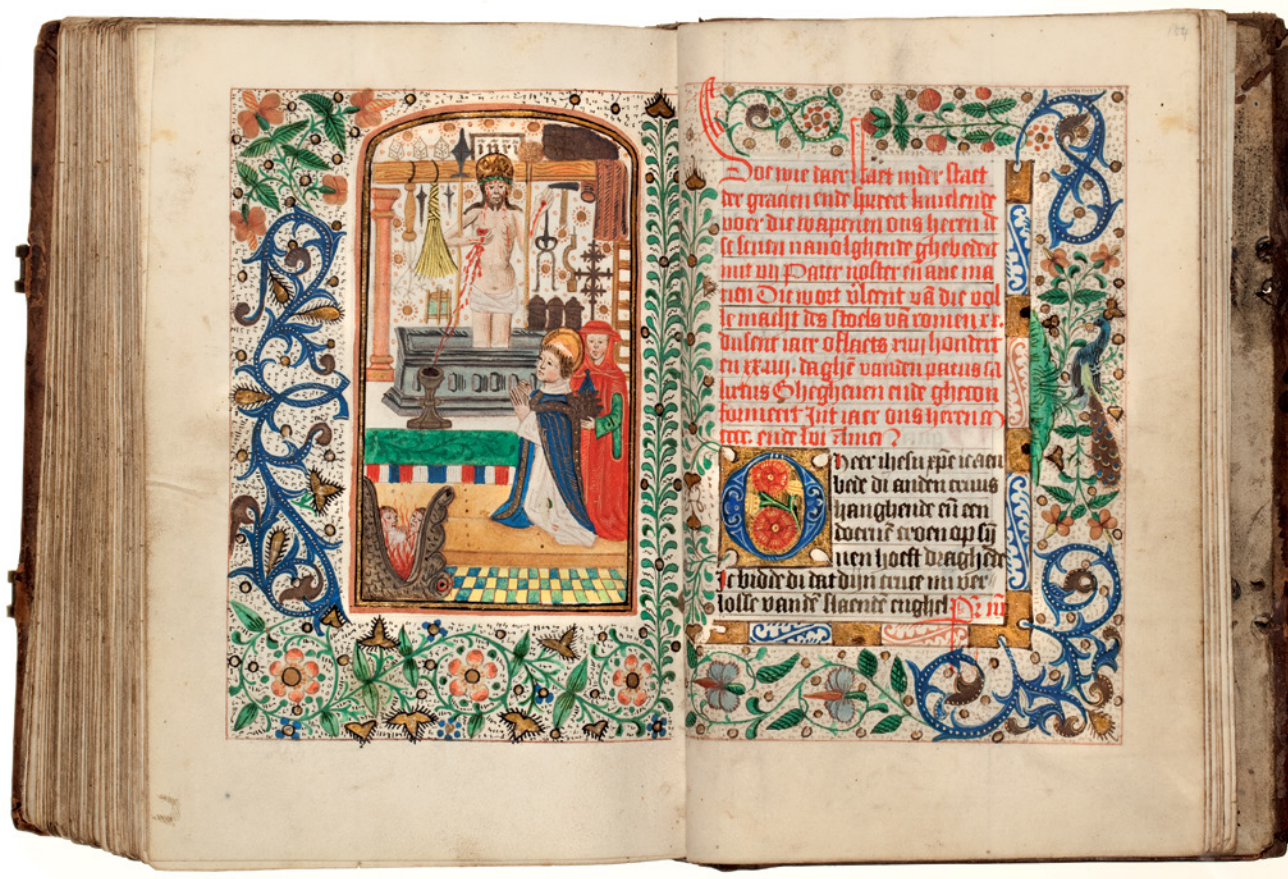 inri
154
Soe wie daer staet in der staet
der gracien ende spreect knielende
voer die wapenen ons heren
navolghende ghebeden
mit vii Pater noster en ave ma
rien Die wort vleent vā die vol
le macht des stoels vā romen xx.
dusent iaer oflaets xiiii hondert
en xx iiii. daghē vanden paeus ca
lixtus Ghegheven ende ghecon
formeert Int iaer ons heren
cccc. ende lvi Amen
O heer ihesu xpe ic aen
bede di anden cruus
hanghende eñ een
doernē croen op sijn
nen hoeft draghēde
Ic bidde di dat dijn cruce mi ver
losse vandē slaendē enghel Pr nr